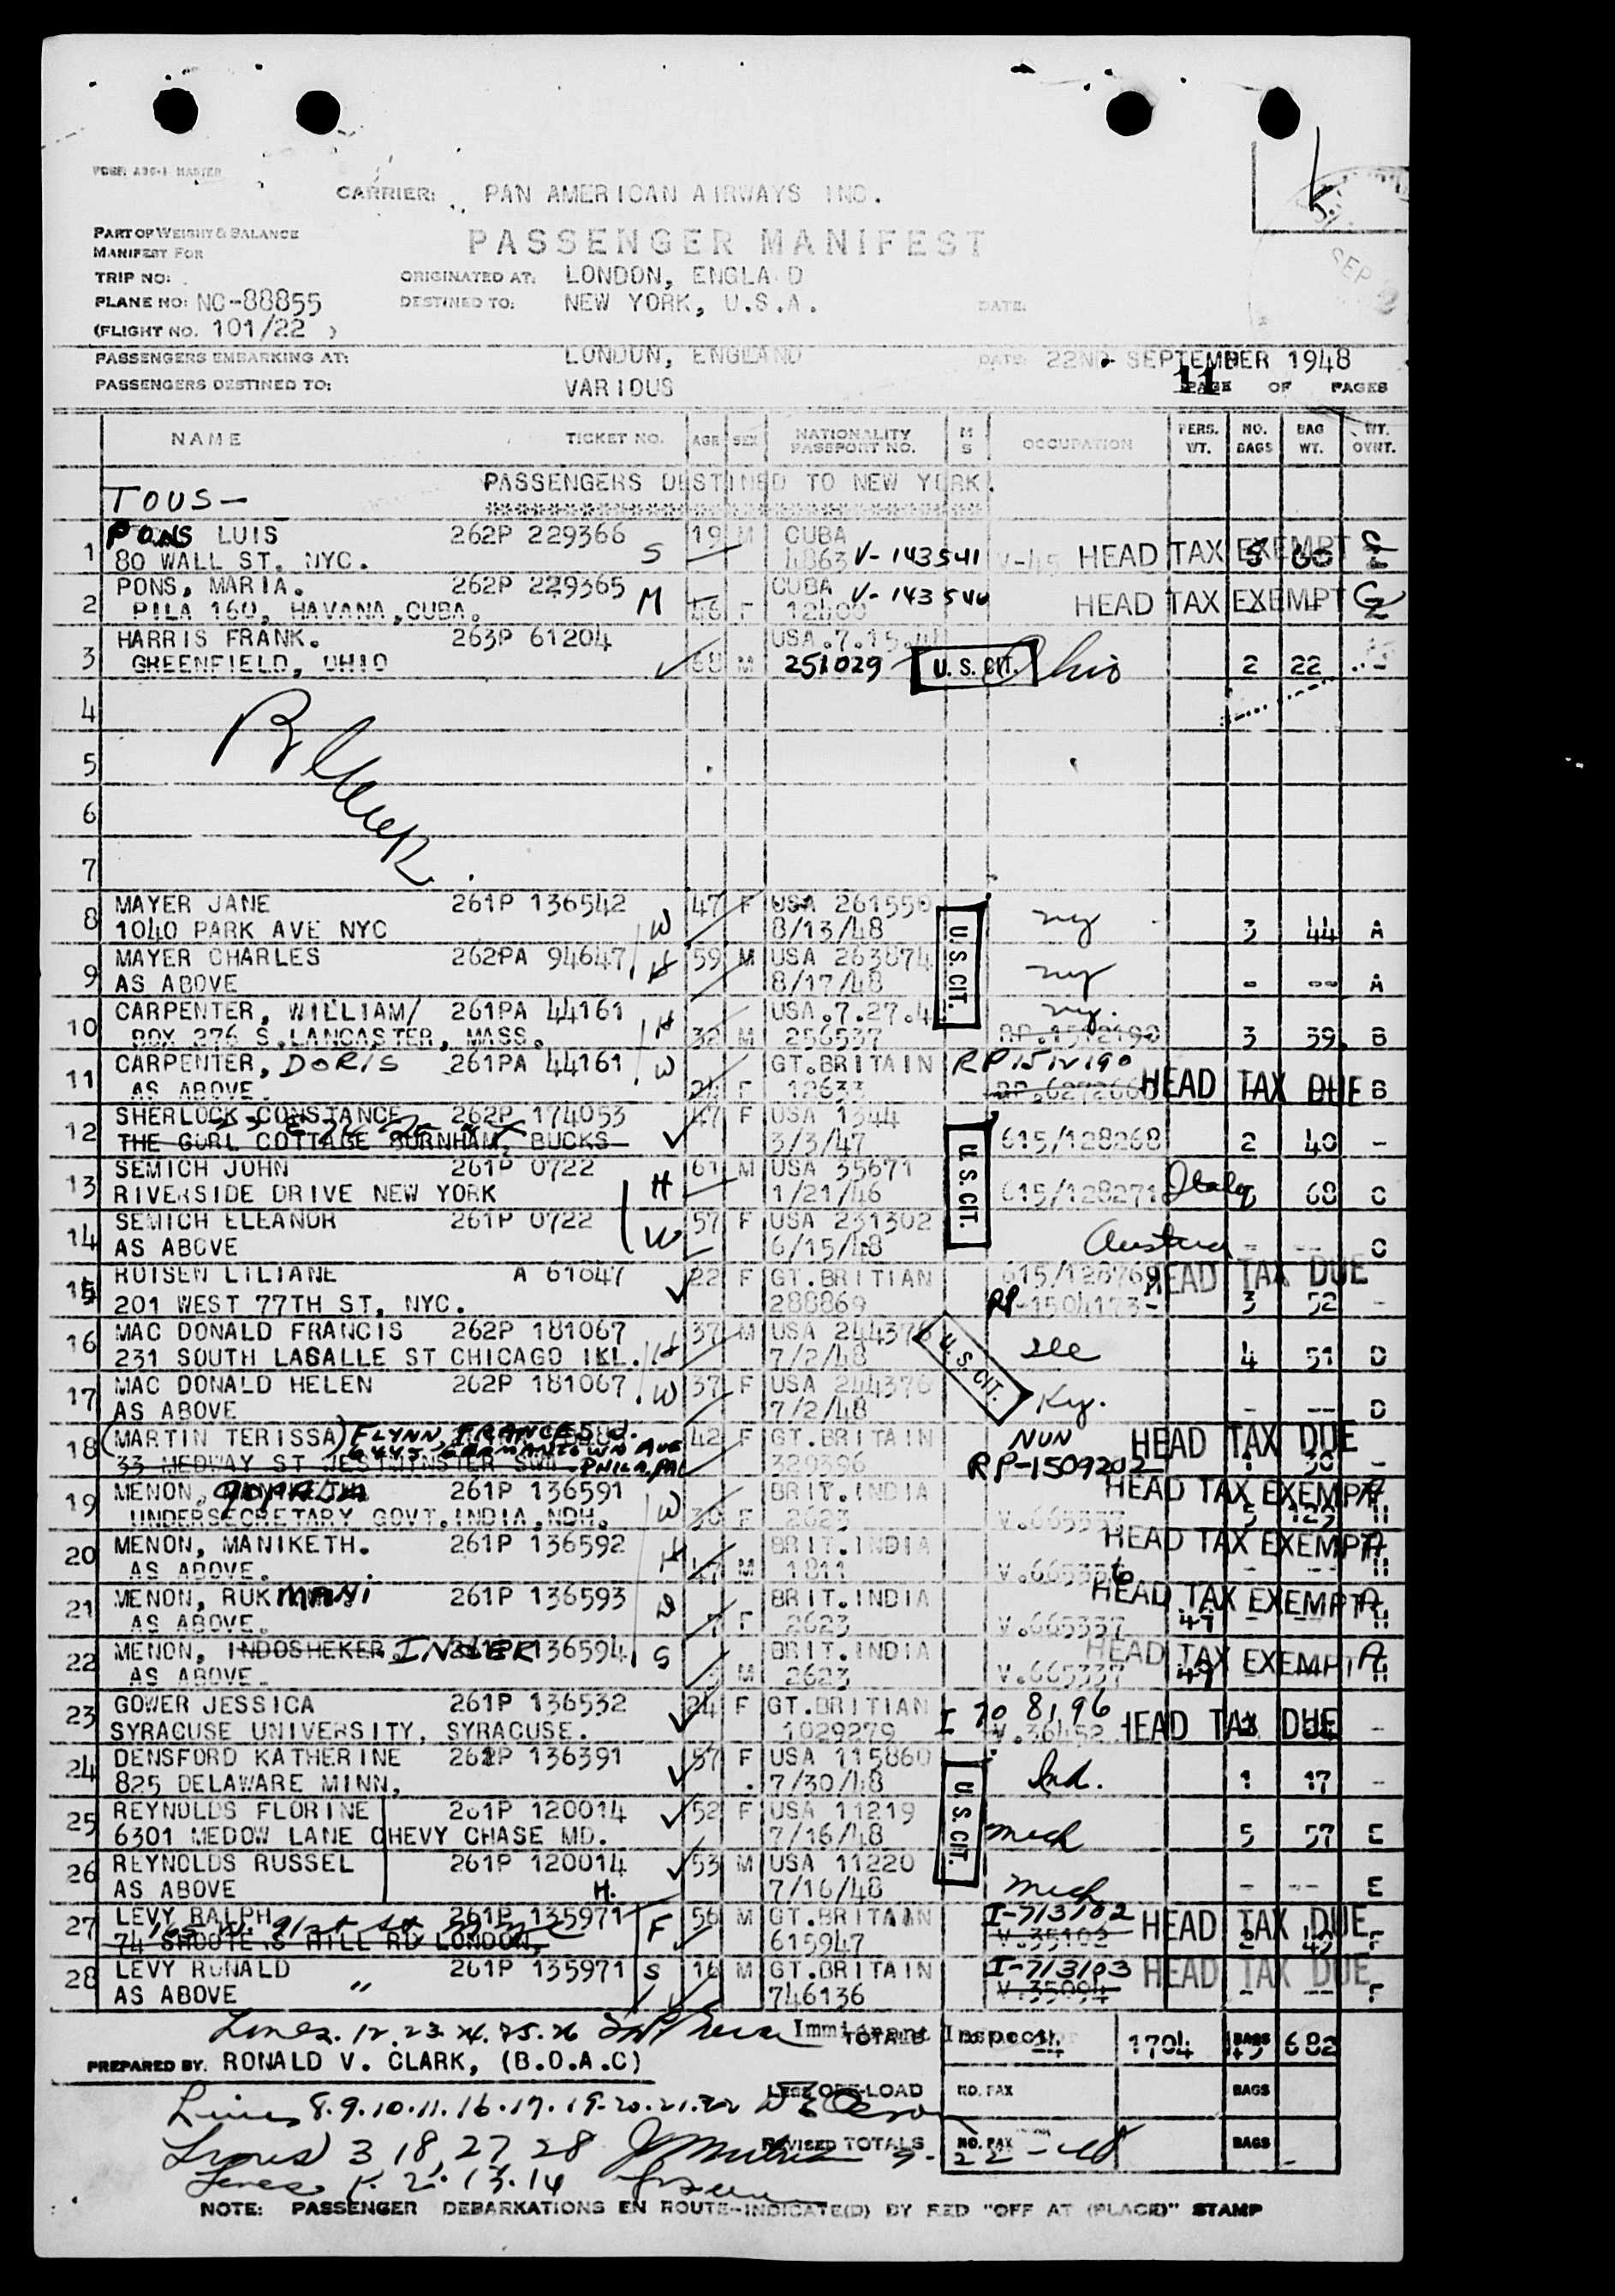 FORM A36-1 MASTER
CARRIER: PAN AMERICAN AIRWAYS INC.
PART OF WEIGHT & BALANCE
MANIFEST FOR
PASSENGER MANIFEST
TRIP NO: ORIGINATED AT: LONDON, ENGLA D
PLANE NO: NC-88855 DESTINED TO: NEW YORK, U.S.A. DATE:
(FLIGHT NO. 101/22 )
SEP
PASSENGERS EMBARKING AT: LONDON, ENGLAND DATE: 22ND SEPTEMBER 1948
PASSENGERS DESTINED TO: VARIOUS 11 PAGE OF PAGES
NAME TICKET NO. AGE SEX NATIONALITY PASSPORT NO. M S OCCUPATION PERS. WT. NO. BAGS BAG WT. WT. OVNT.
PASSENGERS DESTINED TO NEW YORK.
TOUS-
1 PONS LUIS 262P 229366 S 19 M CUBA HEAD TAX EXEMPT
80 WALL ST. NYC. 4863 V-143541 V-45 5 60
2 PONS, MARIA. 262P 229365 M 46 F CUBA V-143540 HEAD TAX EXEMPT
PILA 160, HAVANA, CUBA. 12400
3 HARRIS FRANK. 263P 61204 68 M USA.7.15.4
GREENFIELD, OHIO 251029 U.S. CIT. Ohio 2 22 -
4
5
6
7
8 MAYER JANE 261P 136542 W 47 F USA 261550 U.S. CIT. ny
1040 PARK AVE NYC 8/13/48 3 44 A
9 MAYER CHARLES 262PA 94647 H 59 M USA 263874 ny
AS ABOVE 8/17/48 - -- A
10 CARPENTER, WILLIAM/ 261PA 44161 H 32 M USA.7.27.4 ny.
BOX 276 S.LANCASTER, MASS. 256537 RP.1512190 3 39. B
11 CARPENTER, DORIS 261PA 44161 W 24 F GT.BRITAIN RP1512190
AS ABOVE. 12633 HEAD TAX DUE B
12 SHERLOCK CONSTANCE 262P 174053 47 F USA 1344
THE GORL COTTAGE BURNHAM, BUCKS 3/3/47 615/128268 2 40 -
13 SEMICH JOHN 261P 0722 H 61 M USA 35671 U.S. CIT.
RIVERSIDE DRIVE NEW YORK 1/21/46 615/128271 Italy 68 C
14 SEMICH ELEANOR 261P 0722 W 57 F USA 231302
AS ABOVE 6/15/48 Austria - -- C
15 ROISEN LILIANE A 61647 22 F GT.BRITIAN 615/128769 HEAD TAX DUE
201 WEST 77TH ST, NYC. 288869 RP-1504173- 3 52 -
16 MAC DONALD FRANCIS 262P 181067 37 M USA 244376 U.S. CIT. Ill
231 SOUTH LASALLE ST CHICAGO IKL. H 7/2/48 4 51 D
17 MAC DONALD HELEN 262P 181067 W 37 F USA 244376 Ky.
AS ABOVE 7/2/48 - -- D
18 (MARTIN TERISSA) FLYNN, FRANCES J. 42 F GT.BRITAIN NUN HEAD TAX DUE
6445 GERMANTOWN AVE
33 MEDWAY ST WESTMINSTER SW1 PHILA, PA 329396 RP-1509202 1 30 -
19 MENON, 261P 136591 W 30 F BRIT.INDIA HEAD TAX EXEMPT A
UNDERSECRETARY GOVT.INDIA,NDH. 2623 V.665337 5 129 H
20 MENON, MANIKETH. 261P 136592 H 47 M BRIT.INDIA HEAD TAX EXEMPT A
AS ABOVE. 1811 V.665336 - -- H
21 MENON, RUKMANI 261P 136593 D 7 F BRIT.INDIA HEAD TAX EXEMPT A
AS ABOVE. 2623 V.665337 47 - -- H
22 MENON, INDOSHEKER. INDER 261P 136594 S M BRIT.INDIA HEAD TAX EXEMPT A
AS ABOVE. 2623 V.665337 49 H
23 GOWER JESSICA 261P 136532 24 F GT.BRITIAN I 708196
SYRACUSE UNIVERSITY, SYRACUSE. 1029279 V.36452 HEAD TAX DUE -
24 DENSFORD KATHERINE 261P 136391 57 F USA 115860 U.S. CIT. Ind.
825 DELAWARE MINN, 7/30/48 1 17 -
25 REYNOLDS FLORINE 261P 120014 52 F USA 11219
6301 MEDOW LANE CHEVY CHASE MD. 7/16/48 Mich 5 57 E
26 REYNOLDS RUSSEL 261P 120014 53 M USA 11220
AS ABOVE H. 7/16/48 Mich - -- E
27 LEVY RALPH 261P 135971 F 56 M GT.BRITAIN I-713102 HEAD TAX DUE
165 W. 91st St
74 SHOOTERS HILL RD LONDON, 615947 V.35102 2 49 F
28 LEVY RONALD 261P 135971 S 16 M GT.BRITAIN I-713103 HEAD TAX DUE
AS ABOVE " 746136 V.35094 - -- F
Lines. 12.23.24.25.26 Immigrant Inspector TOTALS 24 1704 BAGS 43 682
PREPARED BY. RONALD V. CLARK, (B.O.A.C)
LESS OFF-LOAD NO. PAX BAGS
Lines 8.9.10.11.16.17.19.20.21.22
REVISED TOTALS NO. PAX BAGS
Lines 3 18, 27, 28 9-22-48
Lines 1. 2. 13. 14
NOTE: PASSENGER DEBARKATIONS EN ROUTE-INDICATE(D) BY RED "OFF AT (PLACE)" STAMP